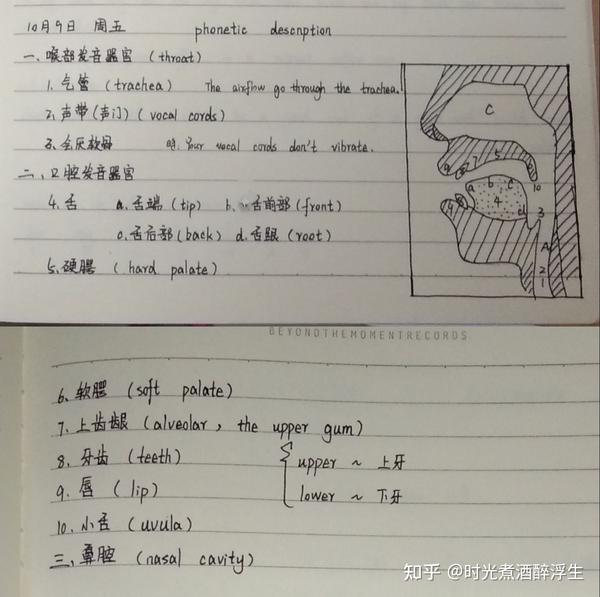 10月9日 周五 phonetic descnption
一、喉部发音器官 (throat)
1. 气管 (trachea) The airflow go through the trachea.
2. 声带(声门) (vocal cords)
3. your vocal cords don't vibrate.
二、口腔发音器官
4. 舌 a. 舌端 (tip) b. 舌前部 (front)
c. 舌后部 (back) d. 舌根 (root)
5. 硬腭 (hard palate)
C
5
7
8
9
a b c
10
4
d
3
8
9
A
2
1
BEYONDTHEMOMENTRECORDS
6. 软腭 (soft palate)
7. 上齿龈 (alveolar, the upper gum)
8. 牙齿 (teeth) { upper ~ 上牙
9. 唇 (lip) lower ~ 下牙
10. 小舌 (uvula)
三、鼻腔 (nasal cavity)
知乎 @时光煮酒醉浮生